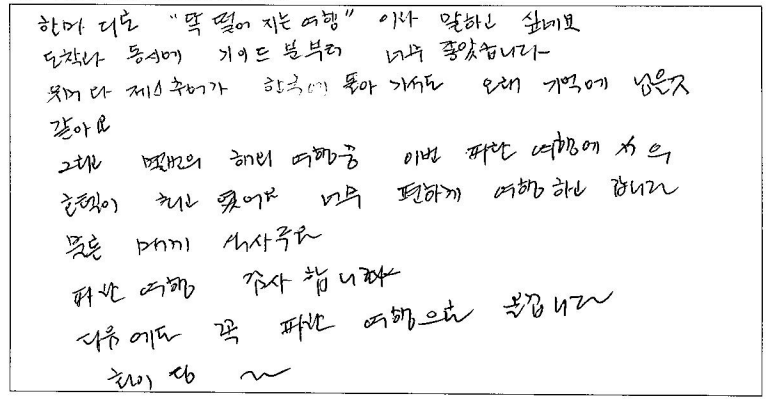 한마디로 "똑 떨어지는 여행" 이라 말하고 싶네요
도착과 동시에 가이드 분부터 너무 좋았습니다~
뭐니 다 제스추어가 한국에 돌아가서도 오래 기억에 남을것
같아요
그리고 몇번의 해외 여행중 이번 파란 여행에서의
호텔이 최고 였어요 너무 편하게 여행하고 갑니다
물론 매끼 식사두요
파란 여행 감사 합니다~
다음에도 꼭 파란 여행으로 올겁니다~
화이팅 ~